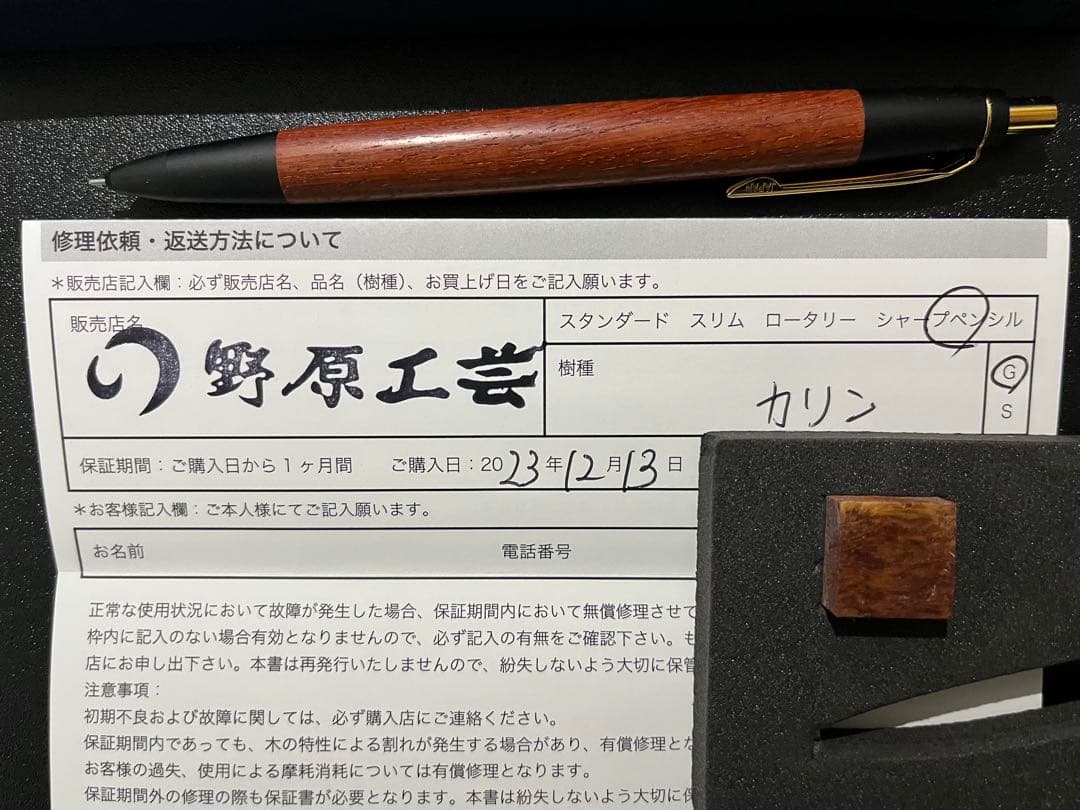 修理依頼・返送方法について
＊販売店記入欄：必ず販売店名、品名（樹種）、お買上げ日をご記入願います。
販売店名
野原工芸
スタンダード　スリム　ロータリー　シャープペンシル
樹種
カリン
G
S
保証期間：ご購入日から１ヶ月間　ご購入日：2023年12月13日
＊お客様記入欄：ご本人様にてご記入願います。
お名前　電話番号
正常な使用状況において故障が発生した場合、保証期間内において無償修理させて
枠内に記入のない場合有効となりませんので、必ず記入の有無をご確認下さい。も
店にお申し出下さい。本書は再発行いたしませんので、紛失しないよう大切に保管
注意事項：
初期不良および故障に関しては、必ず購入店にご連絡ください。
保証期間内であっても、木の特性による割れが発生する場合があり、有償修理とな
お客様の過失、使用による摩耗消耗については有償修理となります。
保証期間外の修理の際も保証書が必要となります。本書は紛失しないよう大切に保